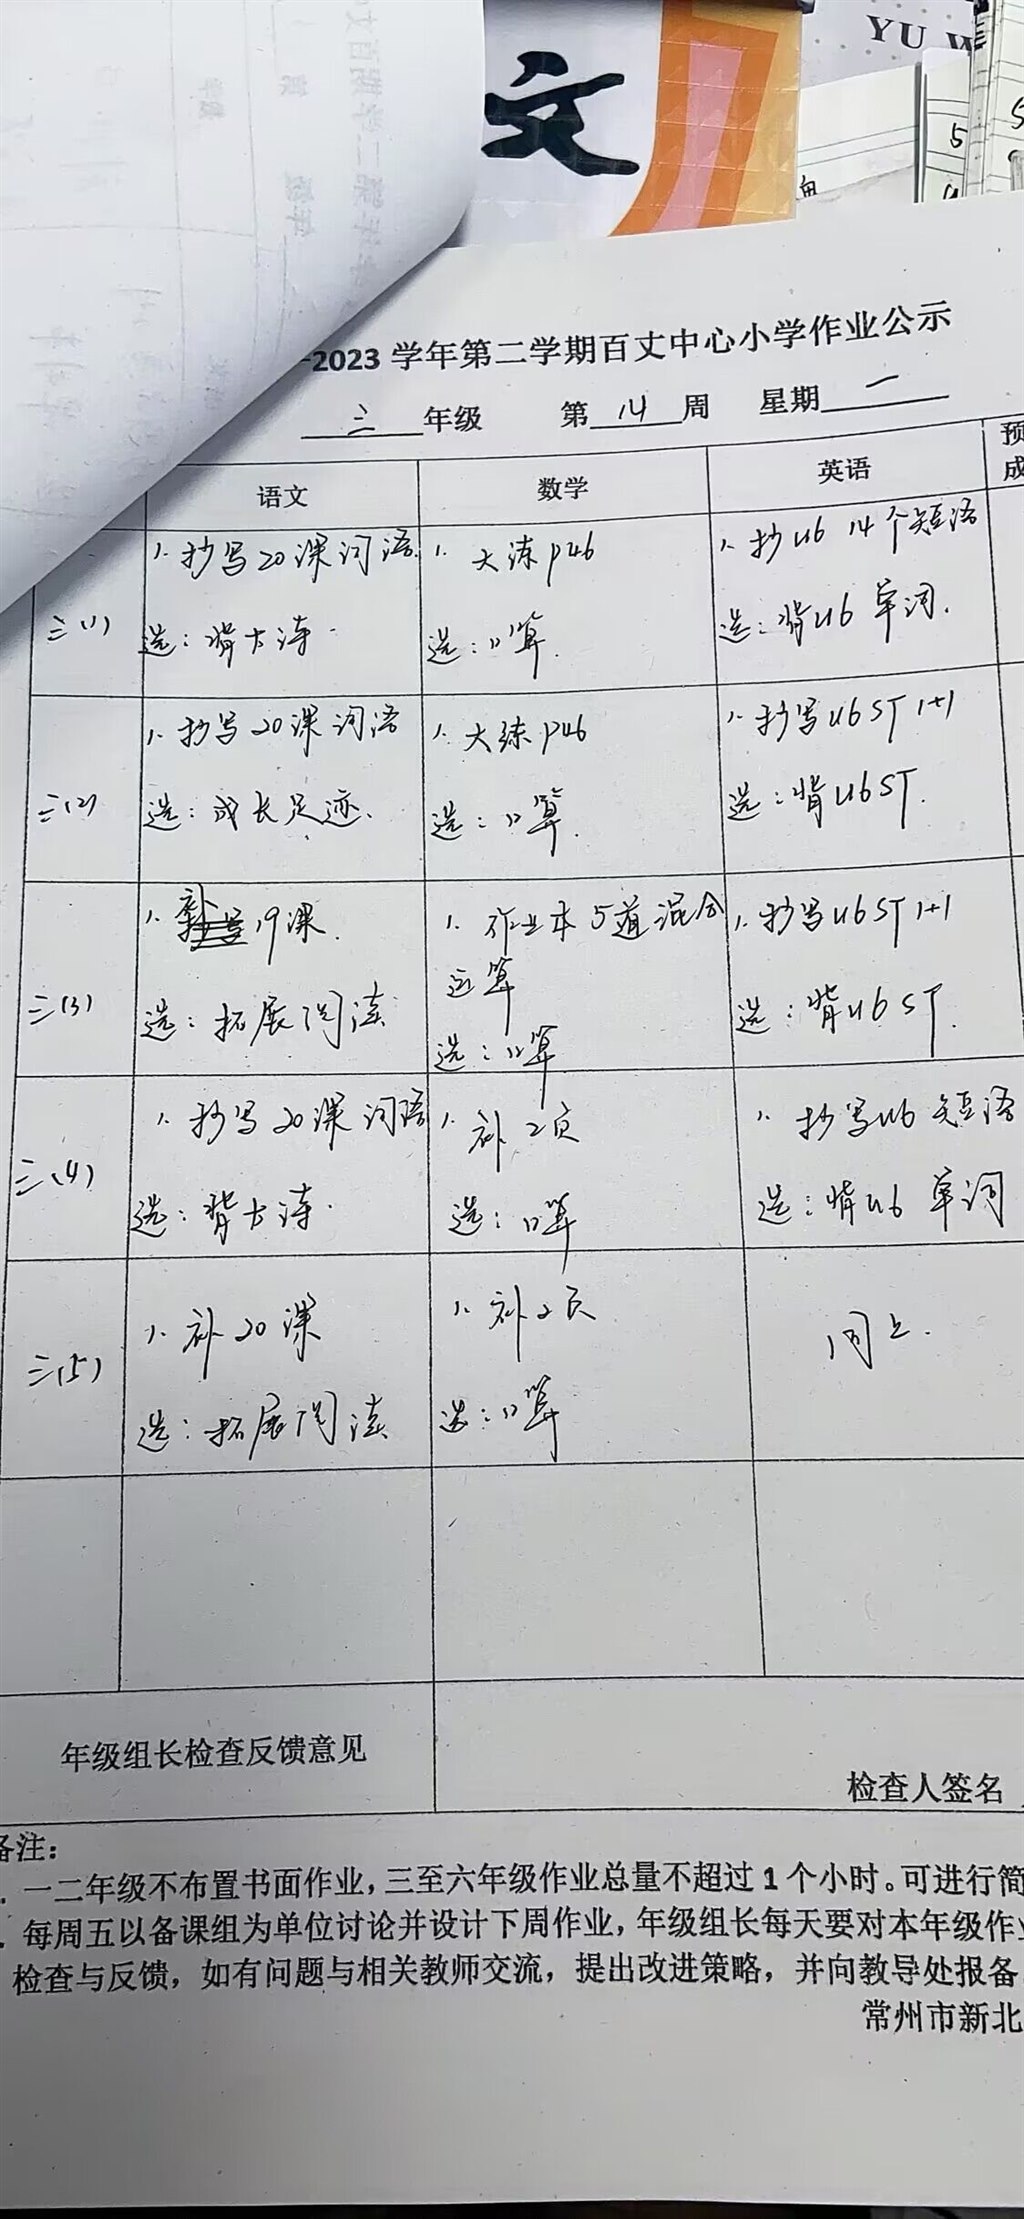 文
YU W
5
-2023 学年第二学期百丈中心小学作业公示
三 年级 第 14 周 星期 一
语文 数学 英语 预
成
三(1)
1. 抄写20课词语.
选: 背古诗.
1. 大练P46
选: 口算.
1. 抄U6 14个短语
选: 背U6 单词.
三(2)
1. 抄写20课词语
选: 成长足迹.
1. 大练P46
选: 口算.
1. 抄写U6 ST 1+1
选: 背U6 ST.
三(3)
1. 补19课.
选: 拓展阅读
1. 作业本5道混合
运算
选: 口算
1. 抄写U6 ST 1+1
选: 背U6 ST.
三(4)
1. 抄写20课词语
选: 背古诗.
1. 补2页
选: 口算
1. 抄写U6 短语
选: 背U6 单词
三(5)
1. 补20课
选: 拓展阅读
1. 补2页
选: 口算
同上.
年级组长检查反馈意见
检查人签名
备注:
. 一二年级不布置书面作业, 三至六年级作业总量不超过1个小时。可进行简
. 每周五以备课组为单位讨论并设计下周作业, 年级组长每天要对本年级作业
检查与反馈, 如有问题与相关教师交流, 提出改进策略, 并向教导处报备
常州市新北